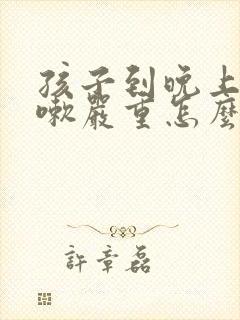 孩子到晚上
嗽嚴重怎麼
許章磊